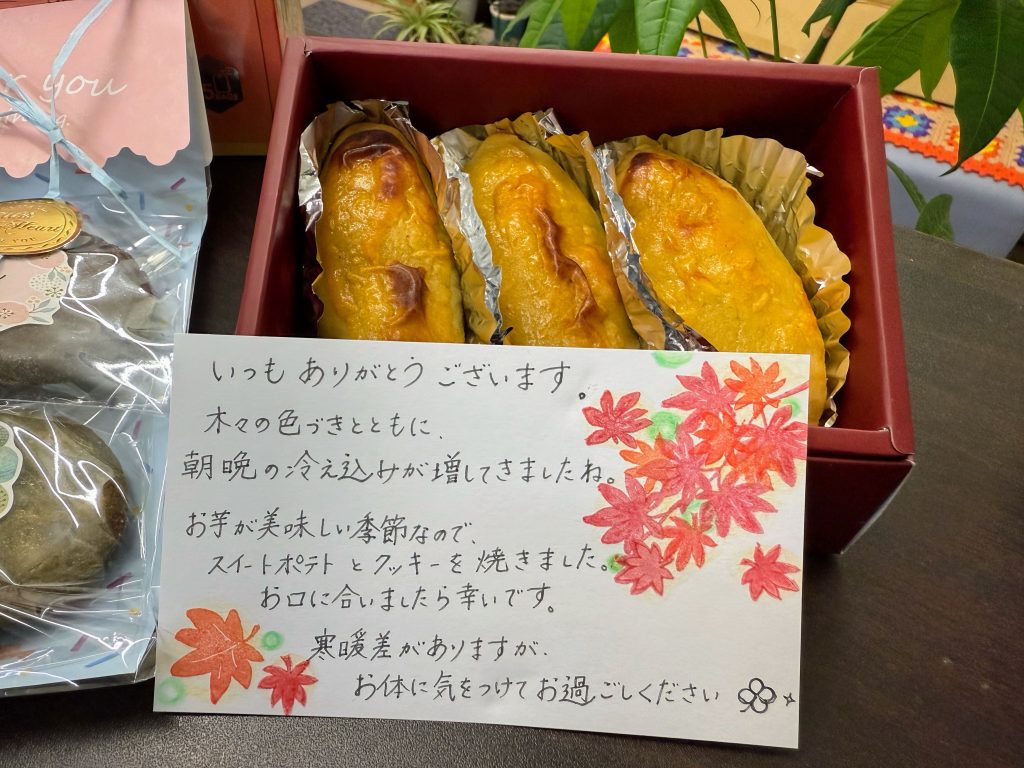 you
いつも ありがとう ございます。
木々の色づきとともに、
朝晩の冷え込みが増してきましたね。
お芋が美味しい季節なので、
スイートポテトとクッキーを焼きました。
お口に合いましたら幸いです。
寒暖差がありますが、
お体に気をつけてお過ごしください